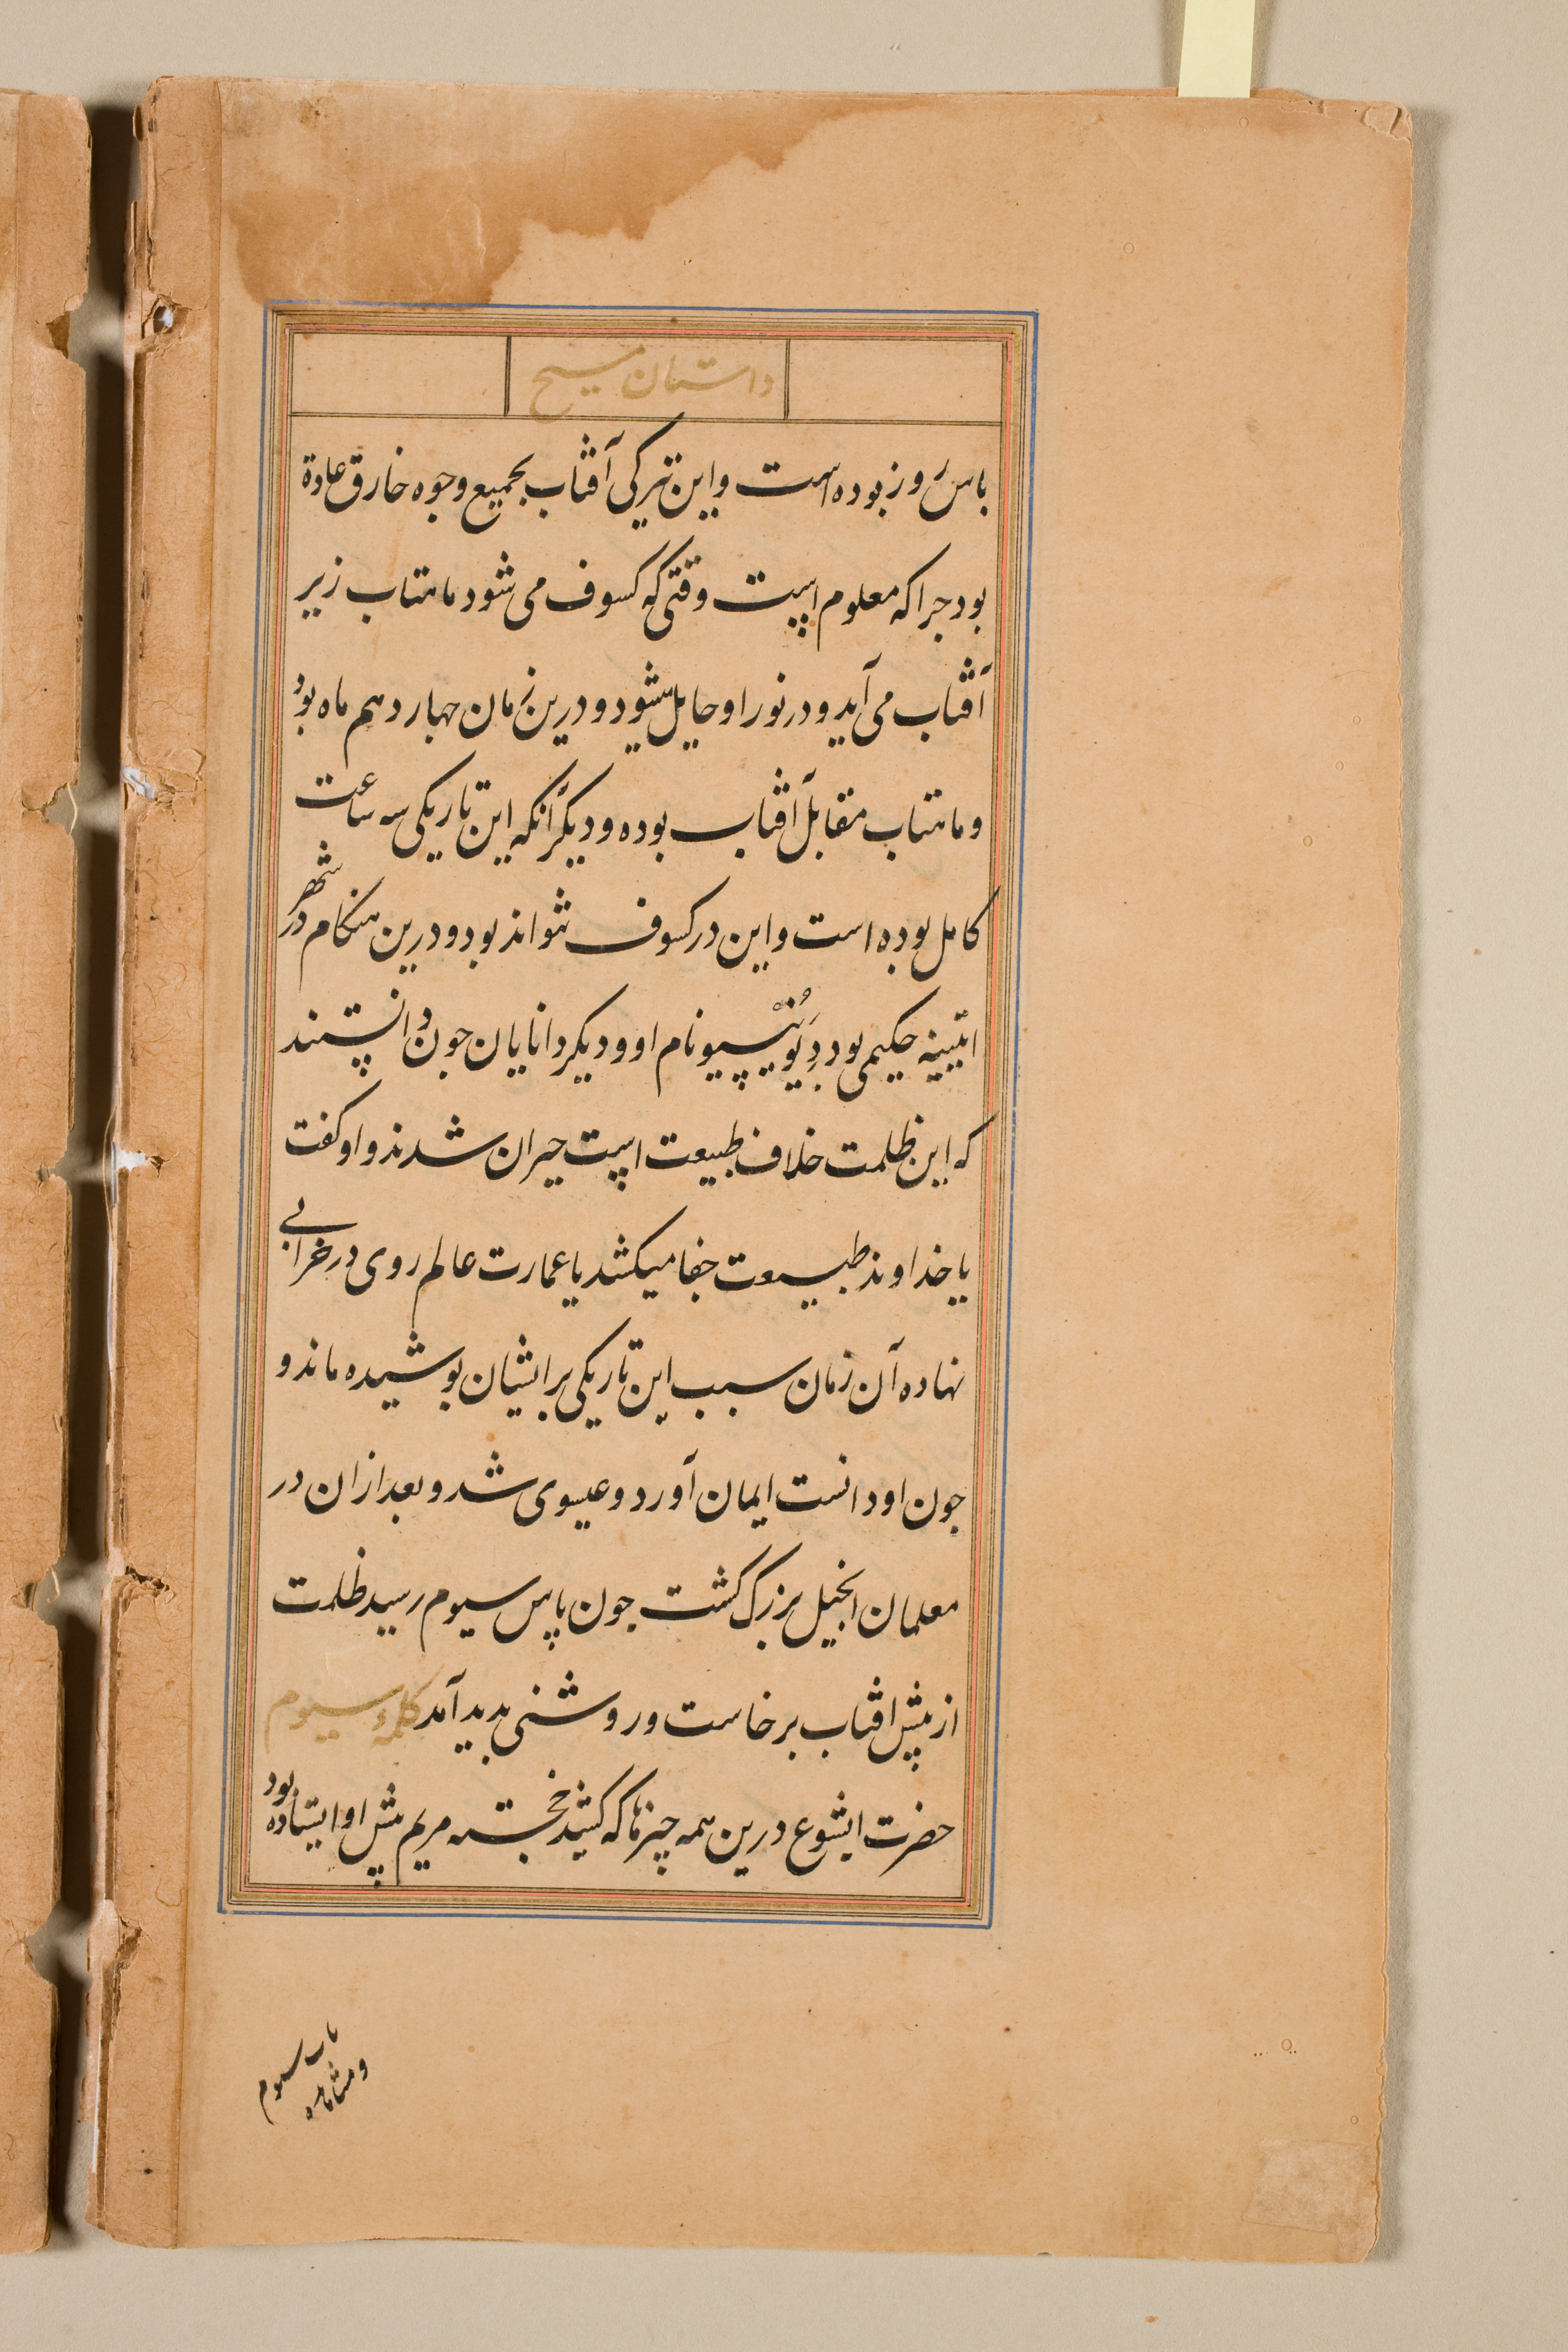 داستان مسیح
پاس روز بوده است و این تیرکی آفتاب بجمیع وجوه خارق عادة
بود جرا که معلوم است وقتی که کسوف می شود ماهتاب زیر
آفتاب می آید و در نور او حایل میشود و درین زمان جهاردهم ماه بود
و ماهتاب مقابل آفتاب بوده و دیکر آنکه این تاریکی سه ساعت
کامل بوده است و این در کسوف نتواند بود و درین هنکام در شهر
اتینه حکیمی بود دیونیسیو نام او و دیکر دانایان جون دانستند
که این ظلمت خلاف طبیعت است حیران شدند و او کفت
یا خداوند طبیعت جفا میکشد یا عمارت عالم روی در خرابی
نهاده آن زمان سبب این تاریکی بر ایشان بوشیده ماند و
جون او دانست ایمان آورد و عیسوی شد و بعد ازان در
معلمان انجیل بزرک کشت جون پاس سیوم رسید ظلمت
از پیش افتاب برخاست و روشنی بدید آمد کلمهٔ سیوم
حضرت ایشوع درین همه چیزها که کشید خجسته مریم پیش او ایستاده بود